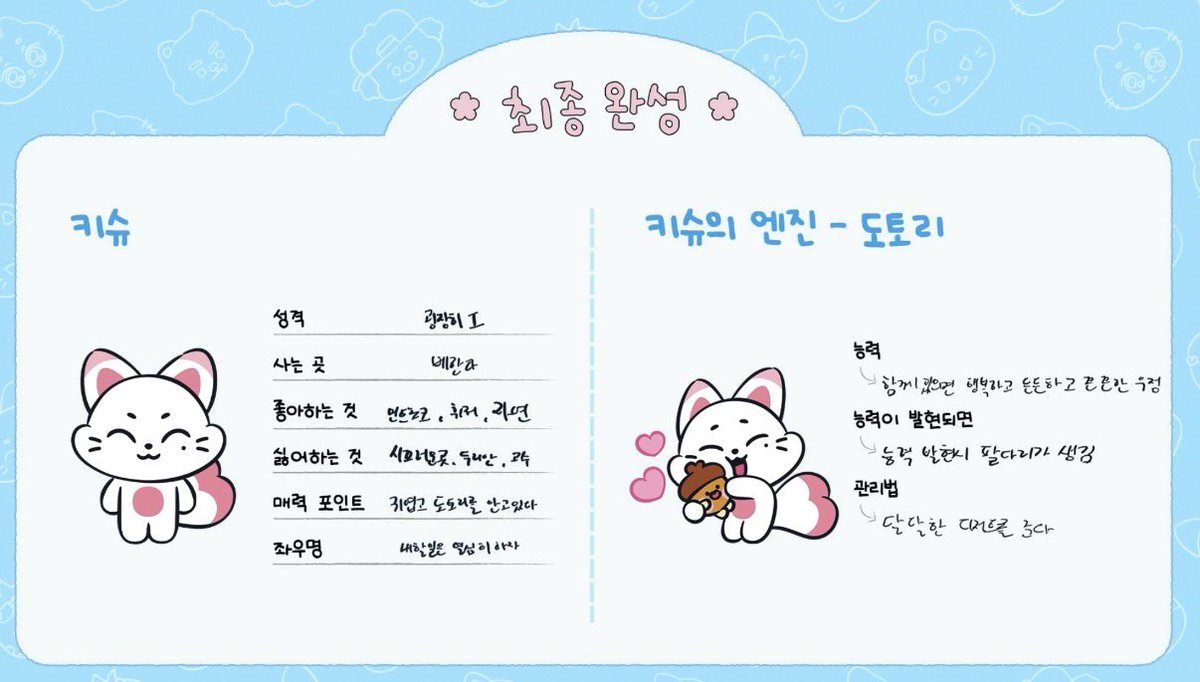 최종 완성
키슈
성격 굉장히 I
사는 곳 베란다
좋아하는 것 민트초코, 휴지, 라면
싫어하는 것 시끄러운곳, 고수
매력 포인트 귀엽고 도토리를 안고있다
좌우명 내할일은 열심히하자
키슈의 엔진 - 도토리
능력
함께 있으면 행복하고 든든하고 튼튼한 우정
능력이 발현되면
능력 발현시 팔다리가 생김
관리법
달달한 디저트를 준다